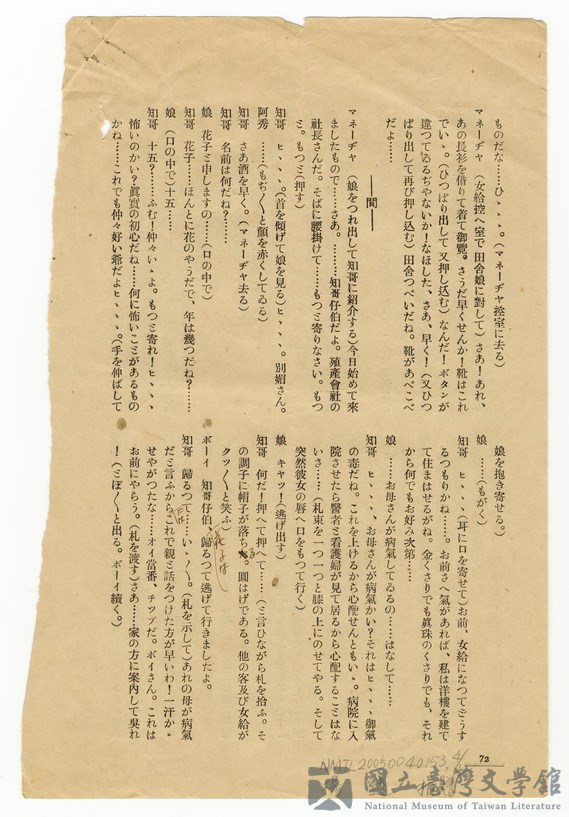 ものだな……ひヽヽヽ。(マネーヂヤ控室に去る)
マネーヂヤ (女給控へ室で田舎娘に對して) さあ!あれ、
あの長衫を借りて着て御覽。さうだ早くせんか!靴はこれ
でいヽ。(ひつぱり出して又押し込む)なんだ!ボタンが
違つてゐるぢやないか!なほした、さあ、早く!(又ひつ
ぱり出して再び押し込む)田舎つぺいだね。靴があべこべ
だよ……
――間――
マネーヂヤ (娘をつれ出して知哥に紹介する)今日始めて來
ましたもので……さあ。………知哥仔伯だよ。殖產會社の
社長さんだ。そばに腰掛けて……もつと寄りなさい。もつ
と。もつと(押す)
知哥 ヒヽヽヽ。(首を傾げて娘を見る)ヒヽヽヽ。別嬪さん。
阿秀 ……(もぢ〳〵と顏を赤くしてゐる)
知哥 さあ酒を早く。(マネーヂヤ去る)
知哥 名前は何だね?……
娘 花子と申しますの……(口の中で)
知哥 花子……ほんとに花のやうだで、年は幾つだね?……
娘 (口の中で)十五……
知哥 十五?……ふむ!仲々いヽよ。もつと寄れ!ヒヽヽヽ
怖いのかい?眞實の初心だね……何に怖いことがあるもの
かね……これでも仲々好い爺だよヒヽヽヽ。(手を伸ばして
娘を抱き寄せる。)
娘 ……(もがく)
知哥 ヒヽヽヽ(耳に口を寄せて)お前、女給になつてどうす
るつもりかね……。お前さへ氣があれば、私は洋樓を建て
て住まはせるがね。金くさりでも眞珠のくさりでも、それ
から何でもお好み次第……
娘 ……お母さんが病氣してゐるの……はなして……
知哥 ヒヽヽヽ、お母さんが病氣かい?それはヒヽヽヽ御氣
の毒だね。これを上げるから心配せんともいヽ。病院に入
院させたら醫者と看護婦が見て居るから心配することはな
いさ……(札束を一つ一つと膝の上にのせてやる。そして
突然彼女の唇へ口をもつて行く)
娘 キヤツ!(逃げ出す)
知哥 何だ!押へて押へて……(と言ひながら札を拾ふ。そ
の調子に帽子が落ちる。圓はげである。他の客及び女給が
クツ〳〵と笑ふ)
ボーイ 知哥仔伯、花子は歸るつて逃げて行きましたよ。
知哥 歸るつて……い、〳〵。(札を示して)あれの母が病氣
だと言ふからこれで親と話をつけた方が早いわ!一汗か
せやがつたな……オイ當番、チツプだ。ボイさん。これは
お前にやらう。(札を渡す)さあ……家の方に案内して吳れ
!(とぼ〳〵と出る。ボーイ續く。)
72
NMTL20050040153
國立臺灣文學館
National Museum of Taiwan Literature